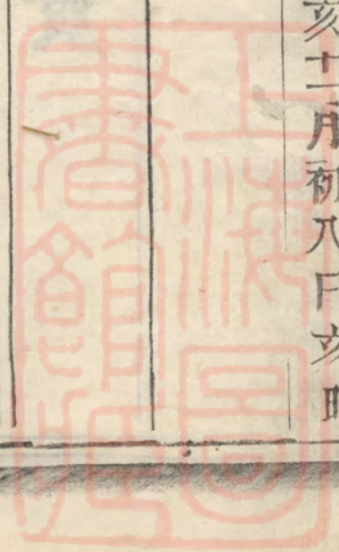 亥十二月初八日亥時
上海圖
書館藏